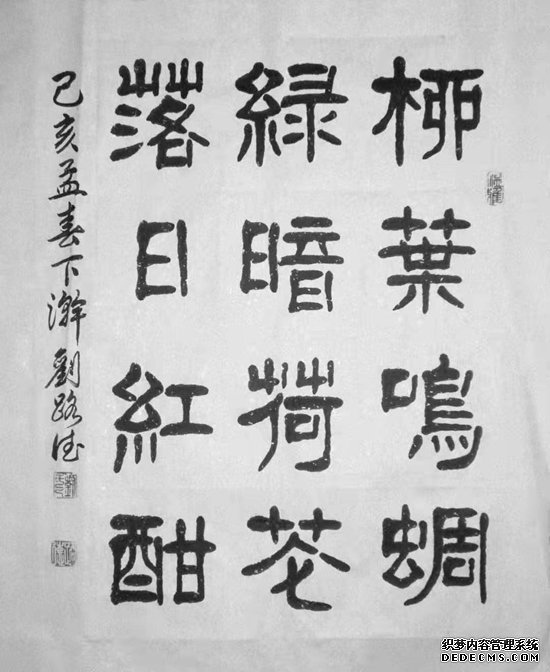 柳葉鳴蜩
緑暗荷花
落日紅酣
己亥孟春下澣劉路德
织梦内容管理系统
DEDECMS.COM